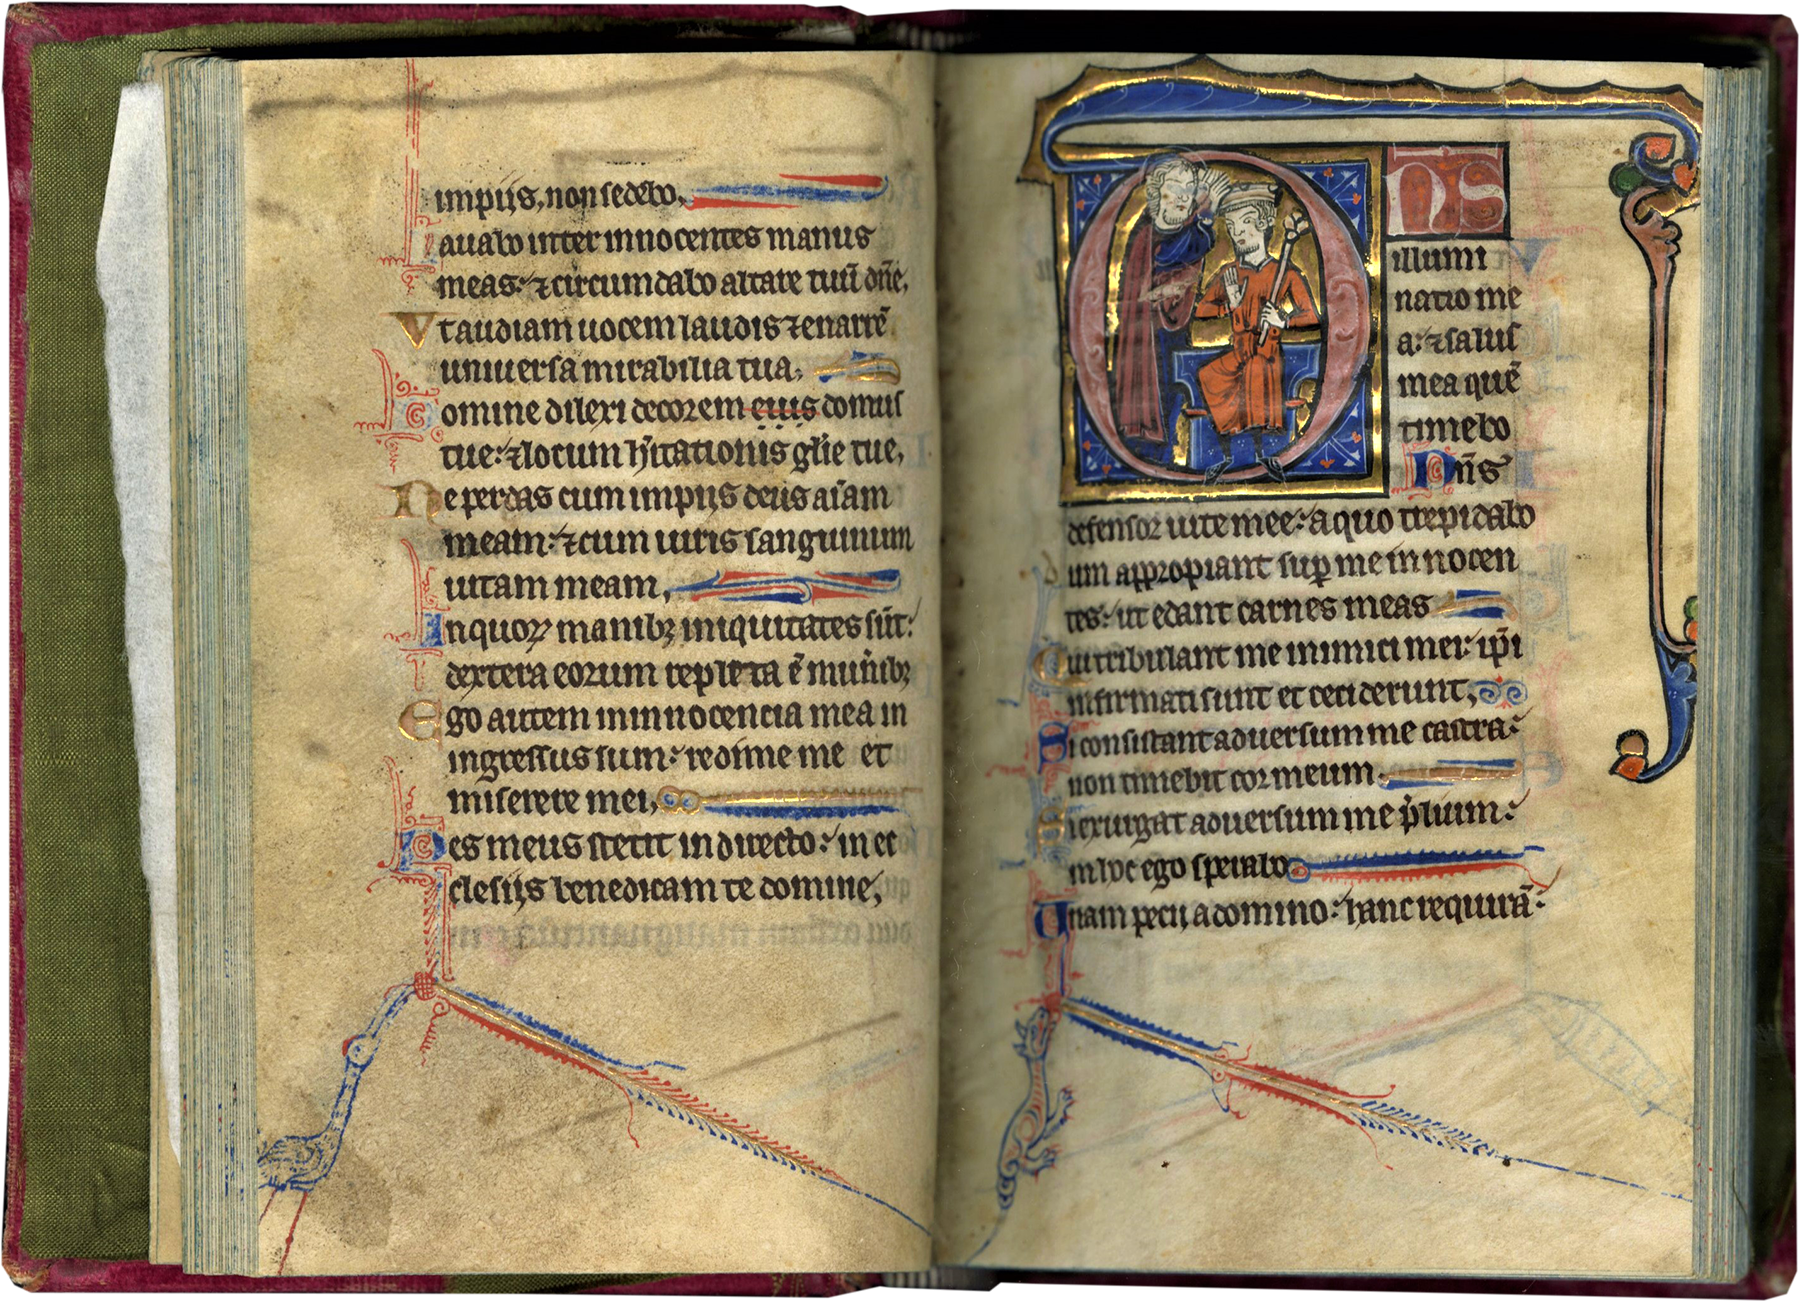 impijs, non sedebo,
Lauabo inter innocentes manus
meas: ⁊ circumdabo altare tuū dñe,
Vt audiam uocem laudis ⁊ enarrē
uniuersa mirabilia tua,
Domine dilexi decorem eius domus
tue: ⁊ locum h̄itationis glie tue,
Ne perdas cum impijs deus aīam
meam: ⁊ cum uiris sanguinum
uitam meam,
In quoꝝ manibꝫ iniquitates sūt:
dextera eorum repleta ē mun̄ibꝫ
Ego autem in innocencia mea in
ingressus sum: redime me et
miserere mei,
Pes meus stetit in directo: in ec
clesijs benedicam te domine,
DNS
illumi
natio me
a: ⁊ salus
mea quē
timebo
Dn̄s
defensor uite mee: a quo trepidabo
Dum appropiant suꝑ me innocen
tes: ut edant carnes meas
Qui tribulant me inimici mei: ip̄i
infirmati sunt et ceciderunt,
Si consistant aduersum me castra:
non timebit cor meum.
Si exurgat aduersum me p̄lium:
in hoc ego sperabo
Unam pecij a domino: hanc requirā: